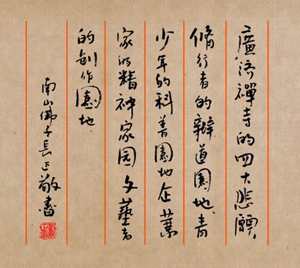 廣济禪寺的四大悲願
脩行者的辦道園地、青
少年的科普園地、企業
家的精神家园、文藝者
的創作園地
南山佛子長正敬書